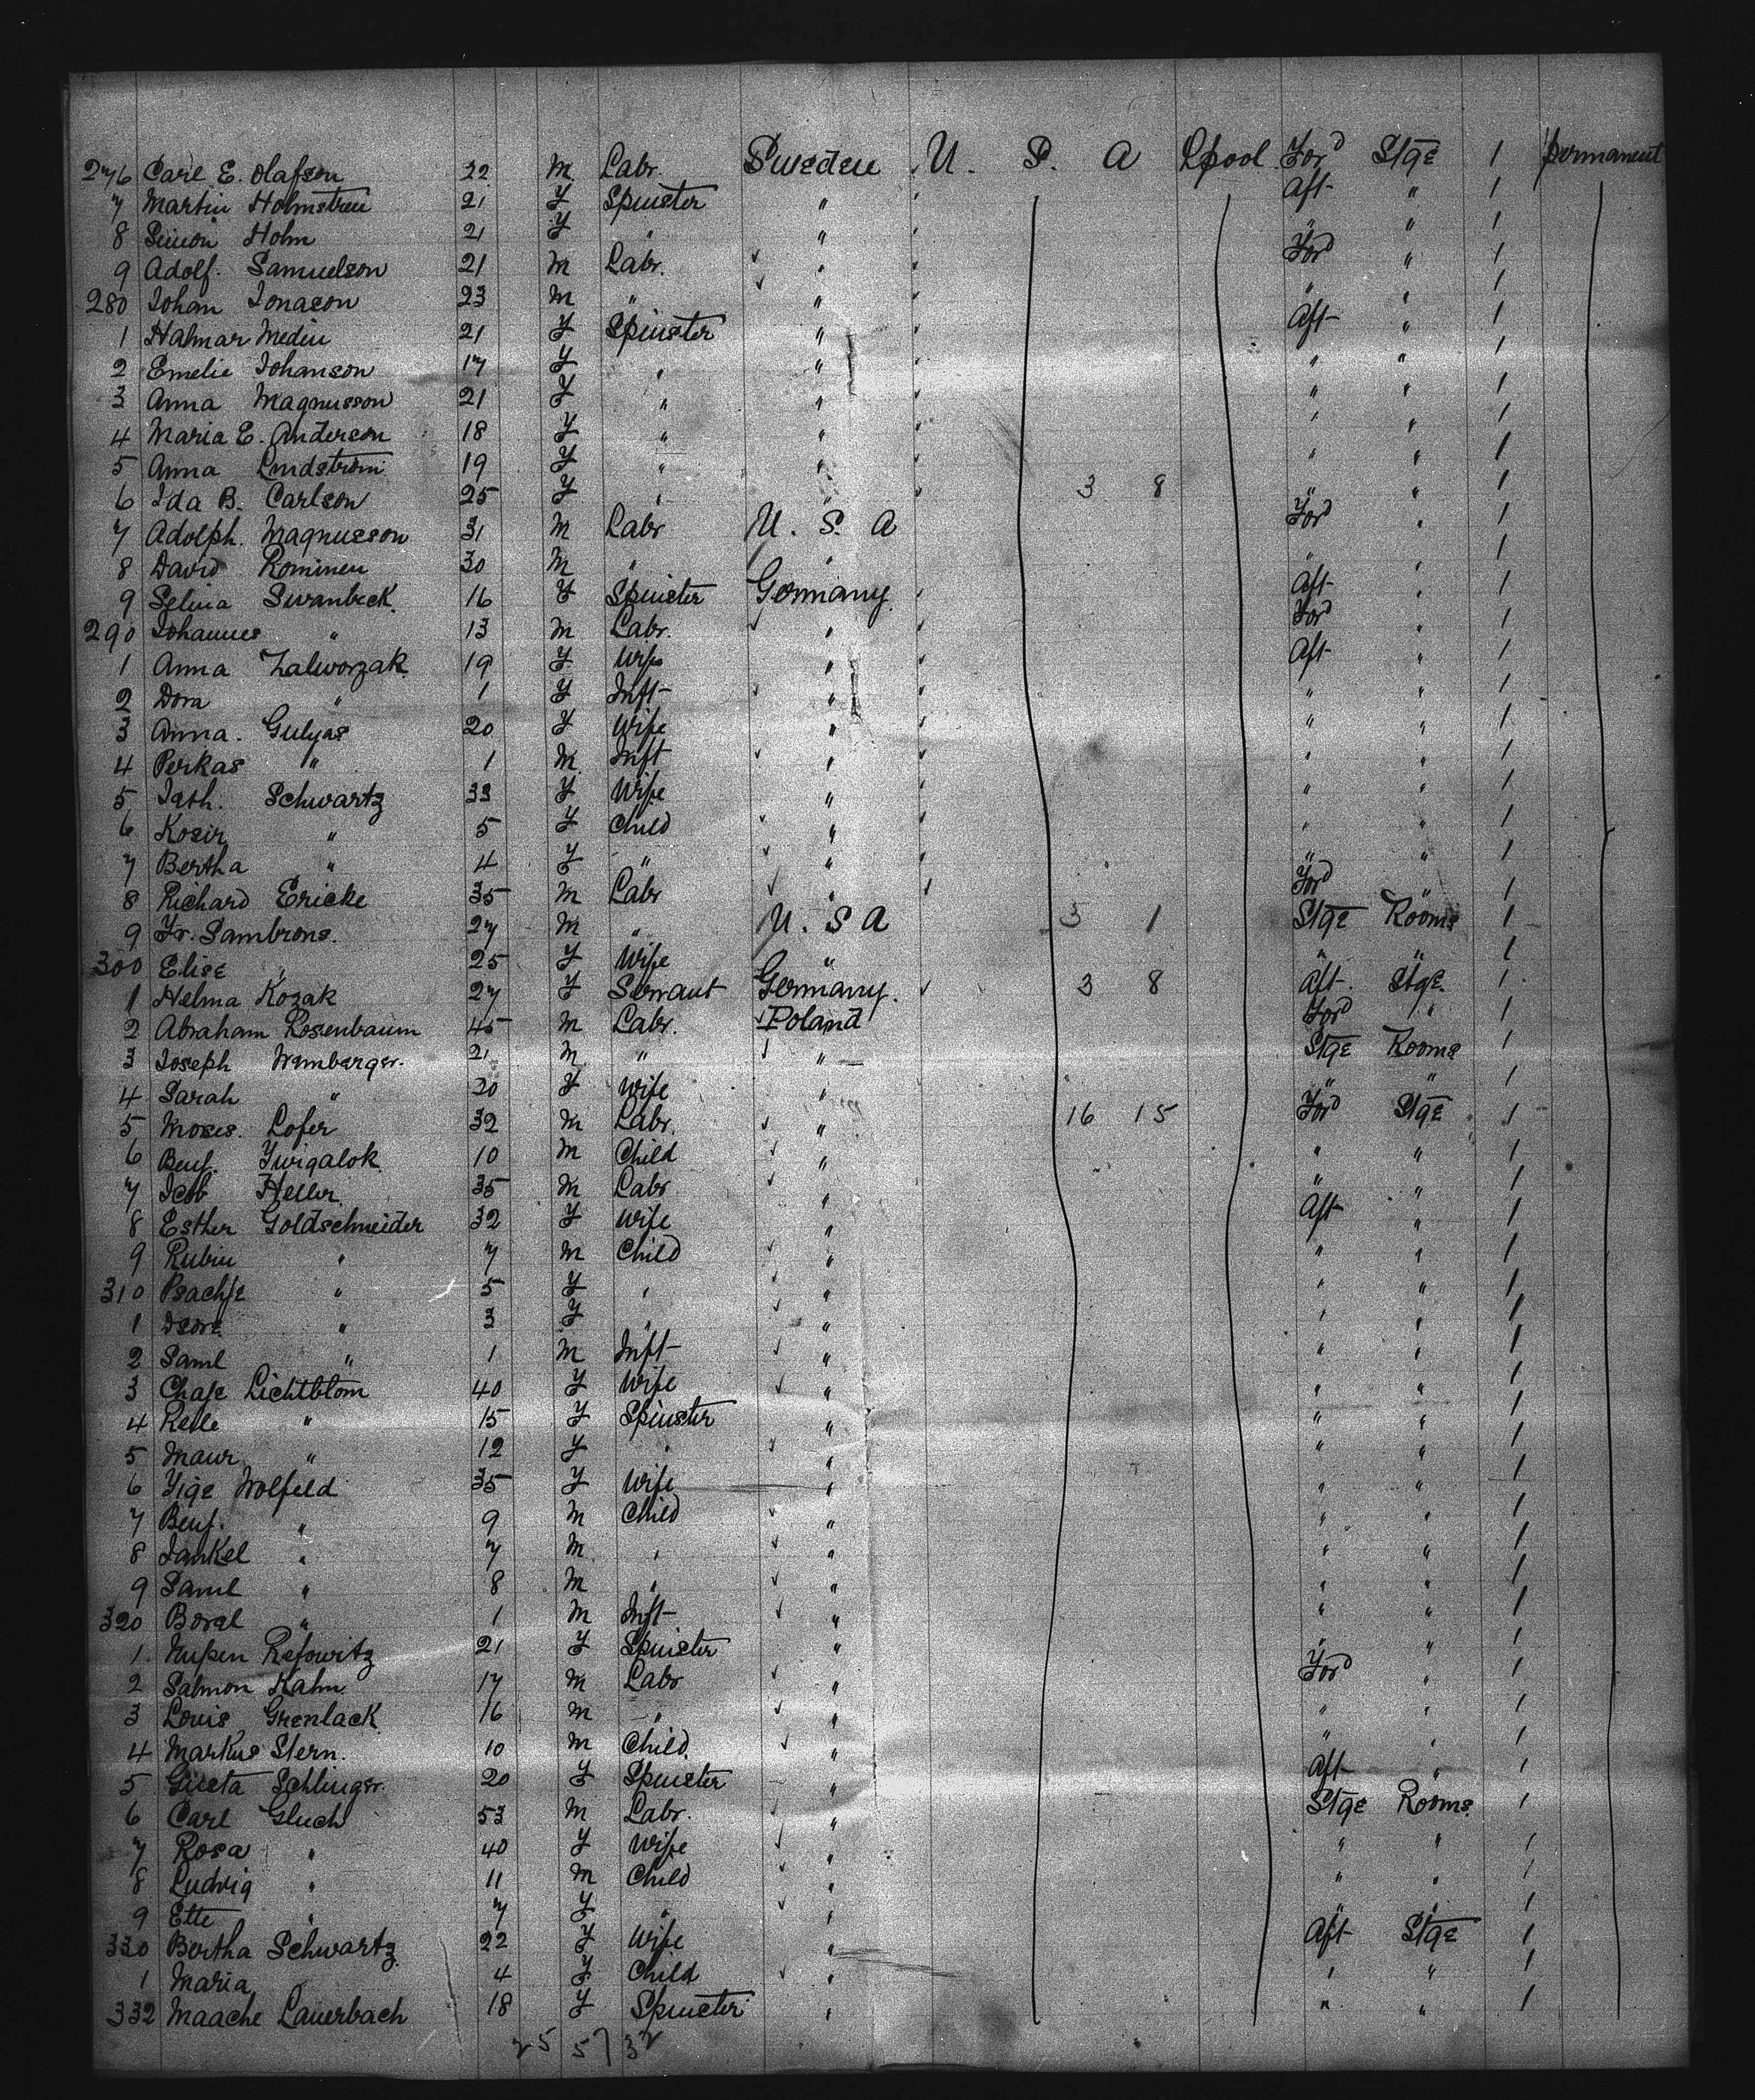 276 Carl E. Olafson 22 M Labr. Sweden U. S. A Lpool Ford Stge 1 permanent
7 Martin Holmstreu 21 F Spinster " Aft " 1
8 Simon Holm 21 F " " " " 1
9 Adolf. Samuelson 21 M Labr. " Ford " 1
280 Johan Jonason 23 M " " " " 1
1 Halmar Medin 21 F Spinster " Aft " 1
2 Emelie Johanson 17 F " " " " 1
3 Anna Magnusson 21 F " " " " 1
4 Maria E. Anderson 18 F " " " " 1
5 Anna Lindstrom 19 F " " " " 1
6 Ida B. Carlson 25 F " " 3 8 " " 1
7 Adolph. Magnusson 31 M Labr U. S. A Ford " 1
8 David Rominen 30 M " " " " 1
9 Selma Swanbeck 16 F Spinster Germany Aft " 1
290 Johannes " 13 M Labr. " Ford " 1
1 Anna Zalworzak 19 F Wife " Aft " 1
2 Dora " 1 F Inft " " " 1
3 Anna. Gulyas 20 F Wife " " " 1
4 Perkas " 1 M Inft " " " 1
5 Kath. Schwartz 33 F Wife " " " 1
6 Kosir " 5 F Child " " " 1
7 Bertha " 4 F " " " " 1
8 Richard Ericke 35 M Labr " Ford " 1
9 Fr. Sambrons. 27 M " U. S A 3 1 Stge Rooms 1
300 Elise " 25 F Wife " " " 1
1 Helma Kozak 27 F Servant Germany. 3 8 Aft. Stge. 1
2 Abraham Rosenbaum 45 M Labr. Poland Ford " 1
3 Joseph Wemberger. 21 M " " Stge Rooms 1
4 Sarah " 20 F Wife " " " 1
5 Moses. Lofer 32 M Labr. " 16 15 Ford Stge 1
6 Benj. Ywigalok 10 M Child " " " 1
7 Heller 35 M Labr " " " 1
8 Esther Goldschneider 32 F Wife " Aft " 1
9 Rubin " 7 M Child " " " 1
310 Psachje " 5 F " " " " 1
1 " 3 F " " " " 1
2 Saml " 1 M Inft " " " 1
3 Chaje Lichtblom 40 F Wife " " " 1
4 Relle " 15 F Spinster " " " 1
5 Maur " 12 F " " " " 1
6 Yige Wolfeld 35 F Wife " " " 1
7 Benj. " 9 M Child " " " 1
8 Jankel " 7 M " " " " 1
9 Saml " 8 M " " " " 1
320 Boral " 1 M Inft " " " 1
1 Refowitz 21 F Spinster " " " 1
2 Salmon Kahn 17 M Labr " Ford " 1
3 Louis Grenlack 16 M " " " " 1
4 Markus Stern. 10 M Child. " " " 1
5 Gusta Schlinger. 20 F Spinster " Aft " 1
6 Carl Gluch 53 M Labr. " Stge Rooms 1
7 Rosa " 40 F Wife " " " 1
8 Ludwig " 11 M Child " " " 1
9 Ette " 7 F " " " " 1
330 Bertha Schwartz 22 F Wife " Aft Stge 1
1 Maria " 4 F Child " " " 1
332 Maache Lauerbach 18 F Spinster " " " 1
25 57 32